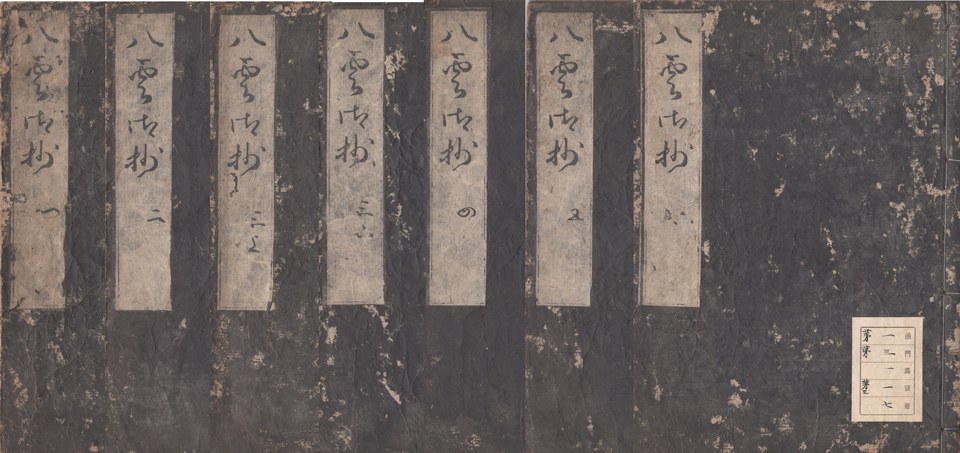 八雲御抄 一
八雲御抄 二
八雲御抄 三上
八雲御抄 三下
八雲御抄 四
八雲御抄 五
八雲御抄 六